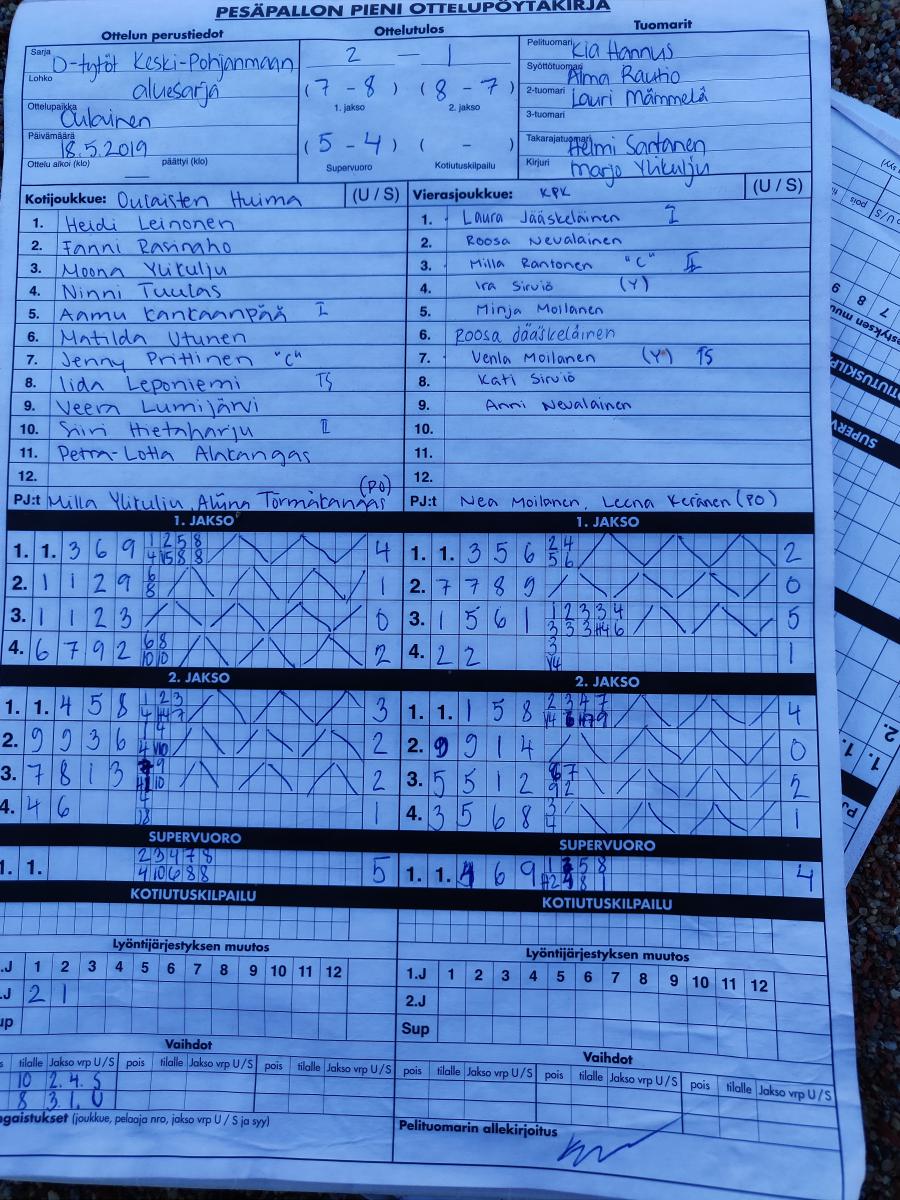 PESÄPALLON PIENI OTTELUPÖYTÄKIRJA
Ottelun perustiedot
Ottelutulos
Tuomarit
Sarja D-tytöt Keski-Pohjanmaan
Lohko aluesarja
Ottelupaikka Oulainen
Päivämäärä 18.5.2019
Ottelu alkoi (klo) — päättyi (klo)
2 — 1
(7 - 8) (8 - 7)
1. jakso 2. jakso
(5 - 4) ( - )
Supervuoro Kotiutuskilpailu
Pelituomari Kia Hannus
Syöttötuomari Alma Rautio
2-tuomari Lauri Mämmelä
3-tuomari
Takarajatuomari Helmi Santanen
Kirjuri Marjo Ylikulju
Kotijoukkue: Oulaisten Huima (U / S)
1. Heidi Leinonen
2. Fanni Rasinaho
3. Moona Ylikulju
4. Ninni Tuulas
5. Aamu Kankaanpää I
6. Matilda Utunen
7. Jenny Prittinen "C"
8. Iida Leponiemi TS
9. Veera Lumijärvi
10. Siiri Hietaharju II
11. Petra-Lotta Alakangas
12.
PJ:t Milla Ylikulju, Alina Törmäkangas (PO)
Vierasjoukkue: KPK (U / S)
1. Laura Jääskeläinen I
2. Roosa Nevalainen
3. Milla Rantonen "C" II
4. Ira Sirviö (Y)
5. Minja Moilanen
6. Roosa Jääskeläinen
7. Venla Moilanen (Y) TS
8. Kati Sirviö
9. Anni Nevalainen
10.
11.
12.
PJ:t Nea Moilanen, Leena Keränen (PO)
1. JAKSO
1. 1. 3 6 9 4
2. 1 1 2 9 1
3. 1 1 2 3 0
4. 6 7 9 2 2
1. JAKSO
1. 1. 3 5 6 2
2. 7 7 8 9 0
3. 1 5 6 1 5
4. 2 2 1
2. JAKSO
1. 1. 4 5 8 3
2. 9 9 3 6 2
3. 7 8 1 3 2
4. 4 6 1
2. JAKSO
1. 1. 1 5 8 4
2. 9 9 1 4 0
3. 5 5 1 2 2
4. 3 5 6 8 1
SUPERVUORO
1. 1. 5
SUPERVUORO
1. 1. 4 6 9 4
KOTIUTUSKILPAILU
KOTIUTUSKILPAILU
Lyöntijärjestyksen muutos
.J 1 2 3 4 5 6 7 8 9 10 11 12
.J 2 1
up
Lyöntijärjestyksen muutos
1.J 1 2 3 4 5 6 7 8 9 10 11 12
2.J
Sup
Vaihdot
s tilalle Jakso vrp U / S pois tilalle Jakso vrp U / S pois tilalle Jakso vrp U / S
10 2. 4. S
8 3. 1. U
ngaistukset (joukkue, pelaaja nro, jakso vrp U / S ja syy)
Vaihdot
pois tilalle Jakso vrp U / S pois tilalle Jakso vrp U / S pois tilalle Jakso vrp U / S
Pelituomarin allekirjoitus